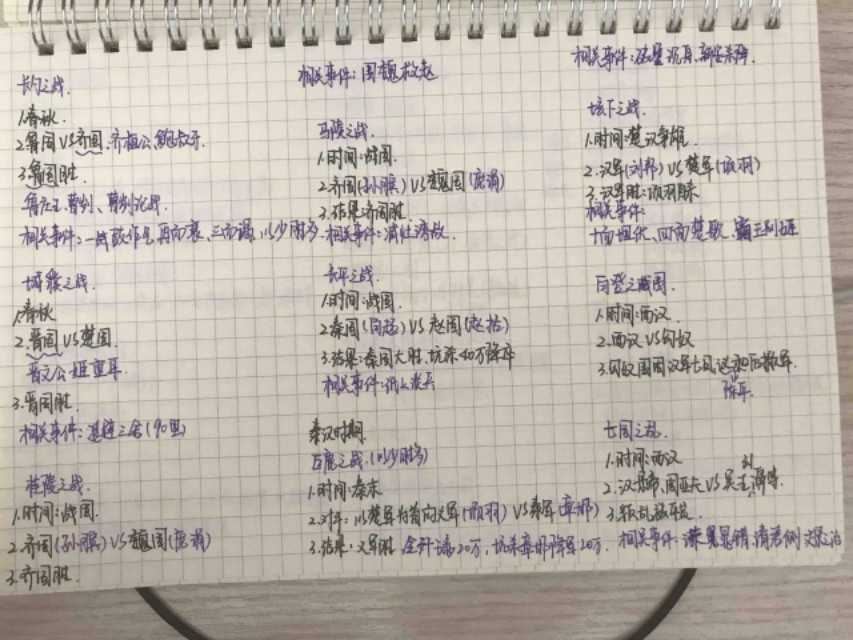 长勺之战.
1.春秋
2.鲁国VS齐国.齐桓公,鲍叔牙.
3.鲁国胜.
鲁庄王.曹刿、曹刿论战.
相关事件:一鼓作气,再而衰、三而竭,以少胜多.
城濮之战.
1.春秋
2.晋国VS楚国.
晋文公-姬重耳.
3.晋国胜.
相关事件:退避三舍(90里)
桂陵之战.
1.时间:战国.
2.齐国(孙膑)VS魏国(庞涓)
3.齐国胜.
相关事件:围魏救赵
马陵之战.
1.时间:战国.
2.齐国(孙膑)VS魏国(庞涓)
3.结果:齐国胜.
相关事件:减灶诱敌.
长平之战.
1.时间:战国.
2.秦国(白起)VS赵国(赵括)
3.结果:秦国大胜,坑杀40万降卒
相关事件:纸上谈兵
秦汉时期.
巨鹿之战.(以少胜多)
1.时间:秦末
2.对阵:以楚军为首的义军(项羽)VS秦军(章邯)
3.结果:义军胜.全歼秦20万,坑杀章邯降军20万.
相关事件:破釜沉舟、
垓下之战.
1.时间:楚汉争雄.
2.汉军(刘邦)VS楚军(项羽)
3.汉军胜:项羽自杀
相关事件:
十面埋伏、四面楚歌、霸王别姬
白登之战围.
1.时间:西汉.
2.西汉VS匈奴
3.匈奴围困汉军七日,后撤军.
陈平.
七国之乱.
1.时间:西汉
2.汉景帝、周亚夫VS吴王刘濞等.
3.叛乱被平定
相关事件:诛晁错,清君侧